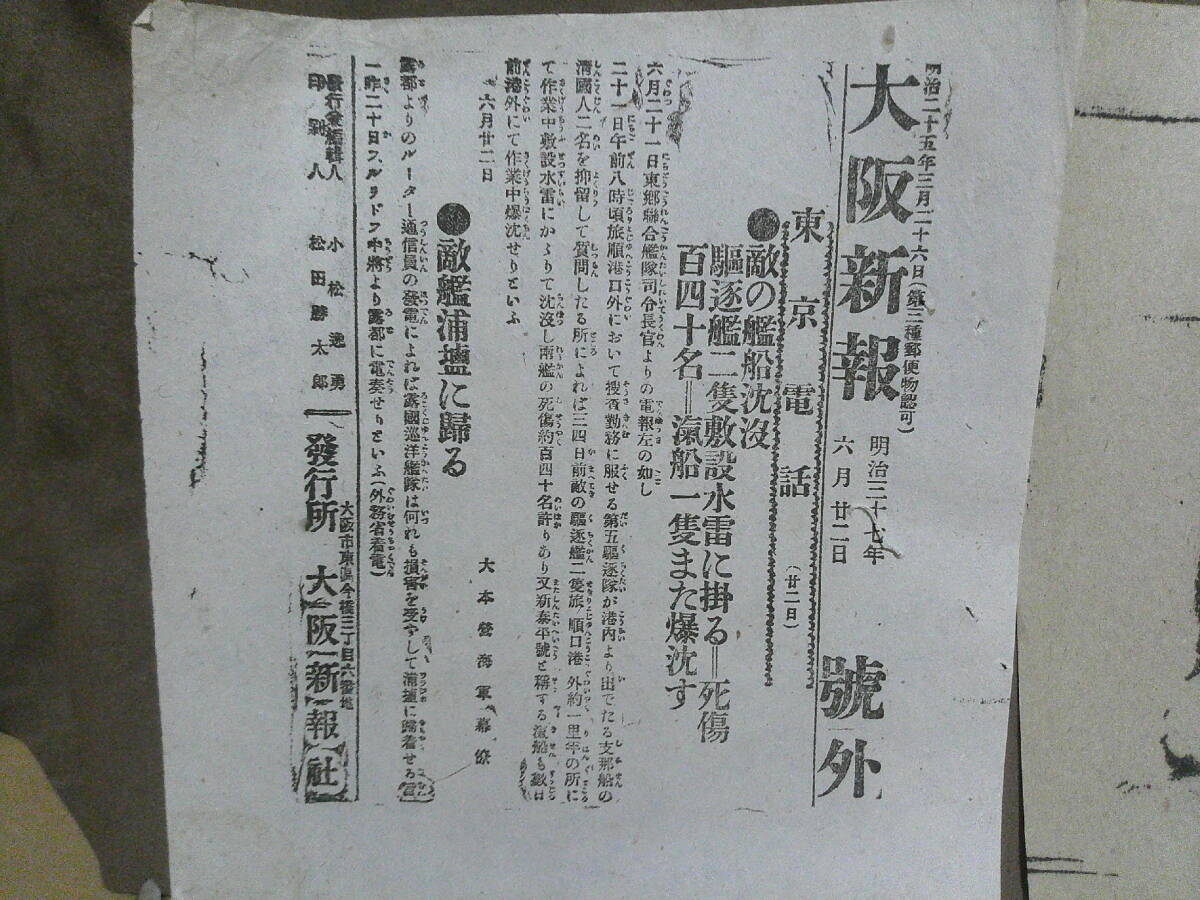 明治二十五年三月二十六日（第三種郵便物認可）
大阪新報 號外
明治三十七年
六月廿二日
東京電話（廿二日）
●敵の艦船沈沒
驅逐艦二隻敷設水雷に掛る＝死傷
百四十名＝滊船一隻また爆沈す
六月二十一日東郷聯合艦隊司令長官よりの電報左の如し
二十一日午前八時頃旅順港口外において搜査勤務に服せる第五驅逐隊が港內より出でたる支那船の
淸國人二名を抑留して質問したる所によれば三四日前敵の驅逐艦二隻旅順口港外約一里半の所に
て作業中敷設水雷にかゝりて沈沒し兩艦の死傷約百四十名許りあり又新泰平號と稱する滊船も數日
前港外にて作業中爆沈せりといふ
六月廿二日
大本營海軍幕僚
●敵艦浦壚に歸る
露都よりのルーター通信員の發電によれば露國巡洋艦隊は何れも損害を受ずして浦壚に歸着せる旨
一昨二十日スルイドフ中將より露都に電奏せりといふ（外務省着電）
發行兼編輯人 小松
印刷人 松田勝太郎
發行所
大阪市東區今橋三丁目六番地
大阪新報社